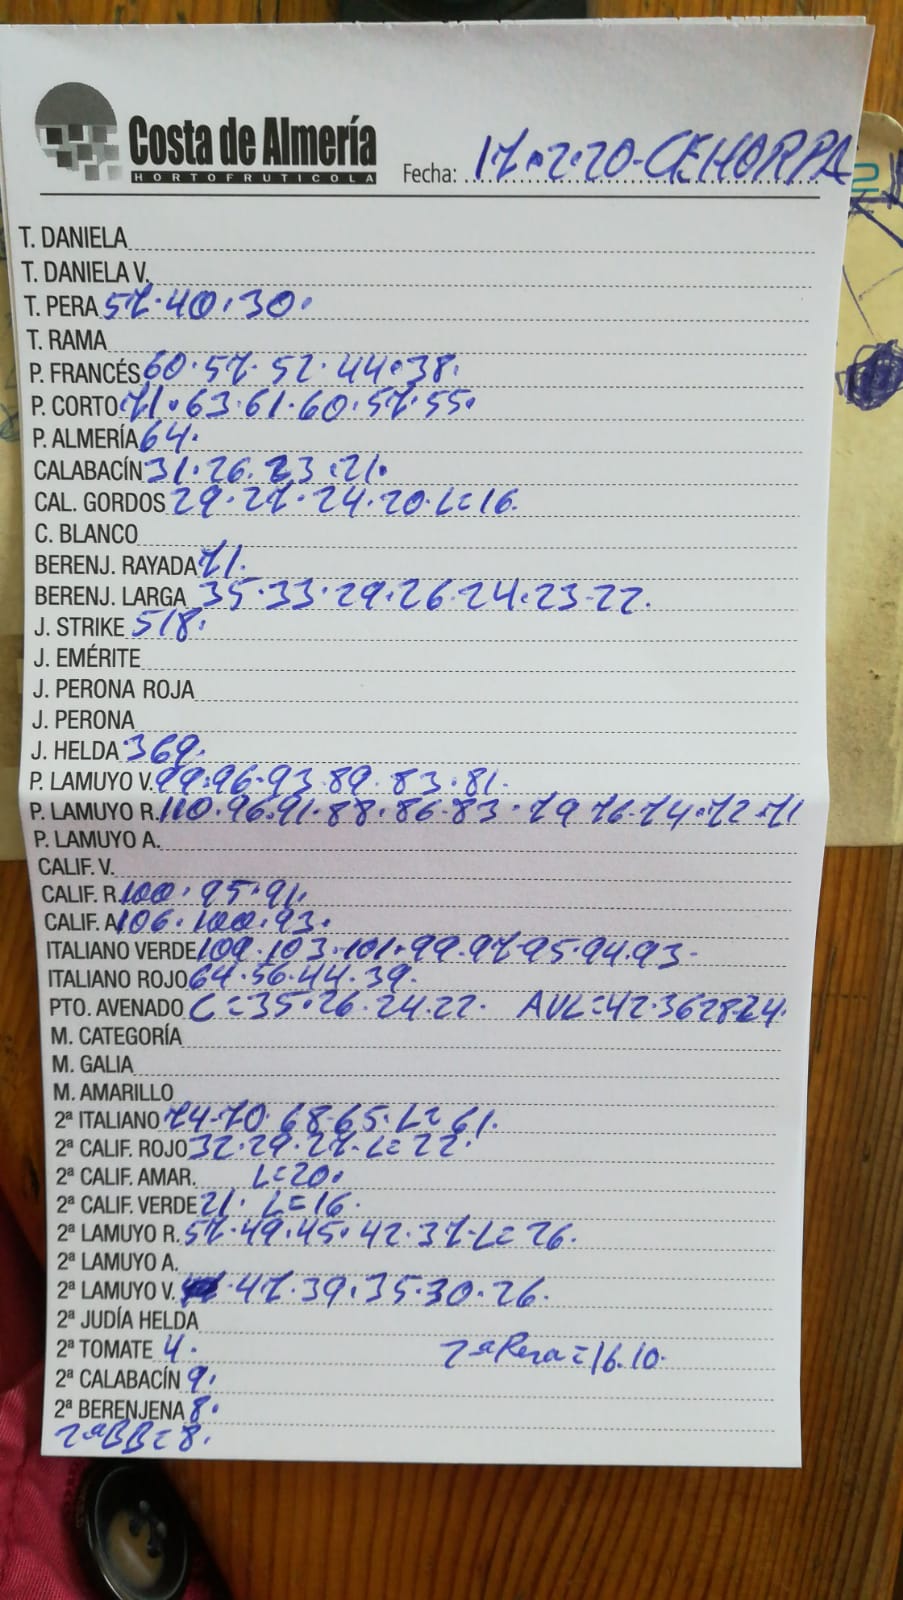 Costa de Almería
HORTOFRUTICOLA
Fecha: 17.2.20-CEHORPA
T. DANIELA
T. DANIELA V.
T. PERA 57.40.30.
T. RAMA
P. FRANCÉS 60.57.52.44.38.
P. CORTO 71.63.61.60.57.55.
P. ALMERÍA 64.
CALABACÍN 31.26.23.21.
CAL. GORDOS 29.27.24.20.L=16.
C. BLANCO
BERENJ. RAYADA 71.
BERENJ. LARGA 35.33.29.26.24.23-22.
J. STRIKE 518.
J. EMÉRITE
J. PERONA ROJA
J. PERONA
J. HELDA 369.
P. LAMUYO V. 99.96.93.89.83.81.
P. LAMUYO R. 110.96.91.88.86.83.79 76.74.72.71
P. LAMUYO A.
CALIF. V.
CALIF. R. 100.95.91.
CALIF. A 106.100.93.
ITALIANO VERDE 109.103.101.99.97.95.94.93.
ITALIANO ROJO 64.56.44.39.
PTO. AVENADO C=35.26.24.22. AVL=42.36 28.24.
M. CATEGORÍA
M. GALIA
M. AMARILLO
2ª ITALIANO 74-70.68.65.L=61.
2ª CALIF. ROJO 32.29.27.L=22.
2ª CALIF. AMAR. L=20.
2ª CALIF. VERDE 21. L=16.
2ª LAMUYO R. 57.49.45.42.37.L=26.
2ª LAMUYO A.
2ª LAMUYO V. 47.39.35.30.26.
2ª JUDÍA HELDA
2ª TOMATE 4. 2ª Pera=16.10.
2ª CALABACÍN 9.
2ª BERENJENA 8.
2ªBB=8.